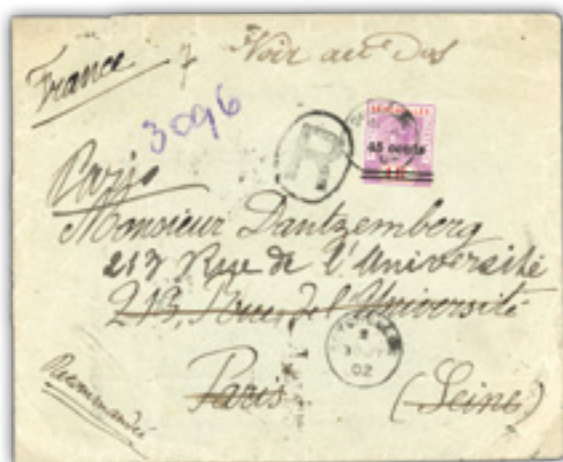 France
Voir au Dos
3096
R
45 cents
Paris
Monsieur Dantzemberg
213 Rue de l'Université
213, Rue de l'Université
02
Paris (Seine)
Recommandée